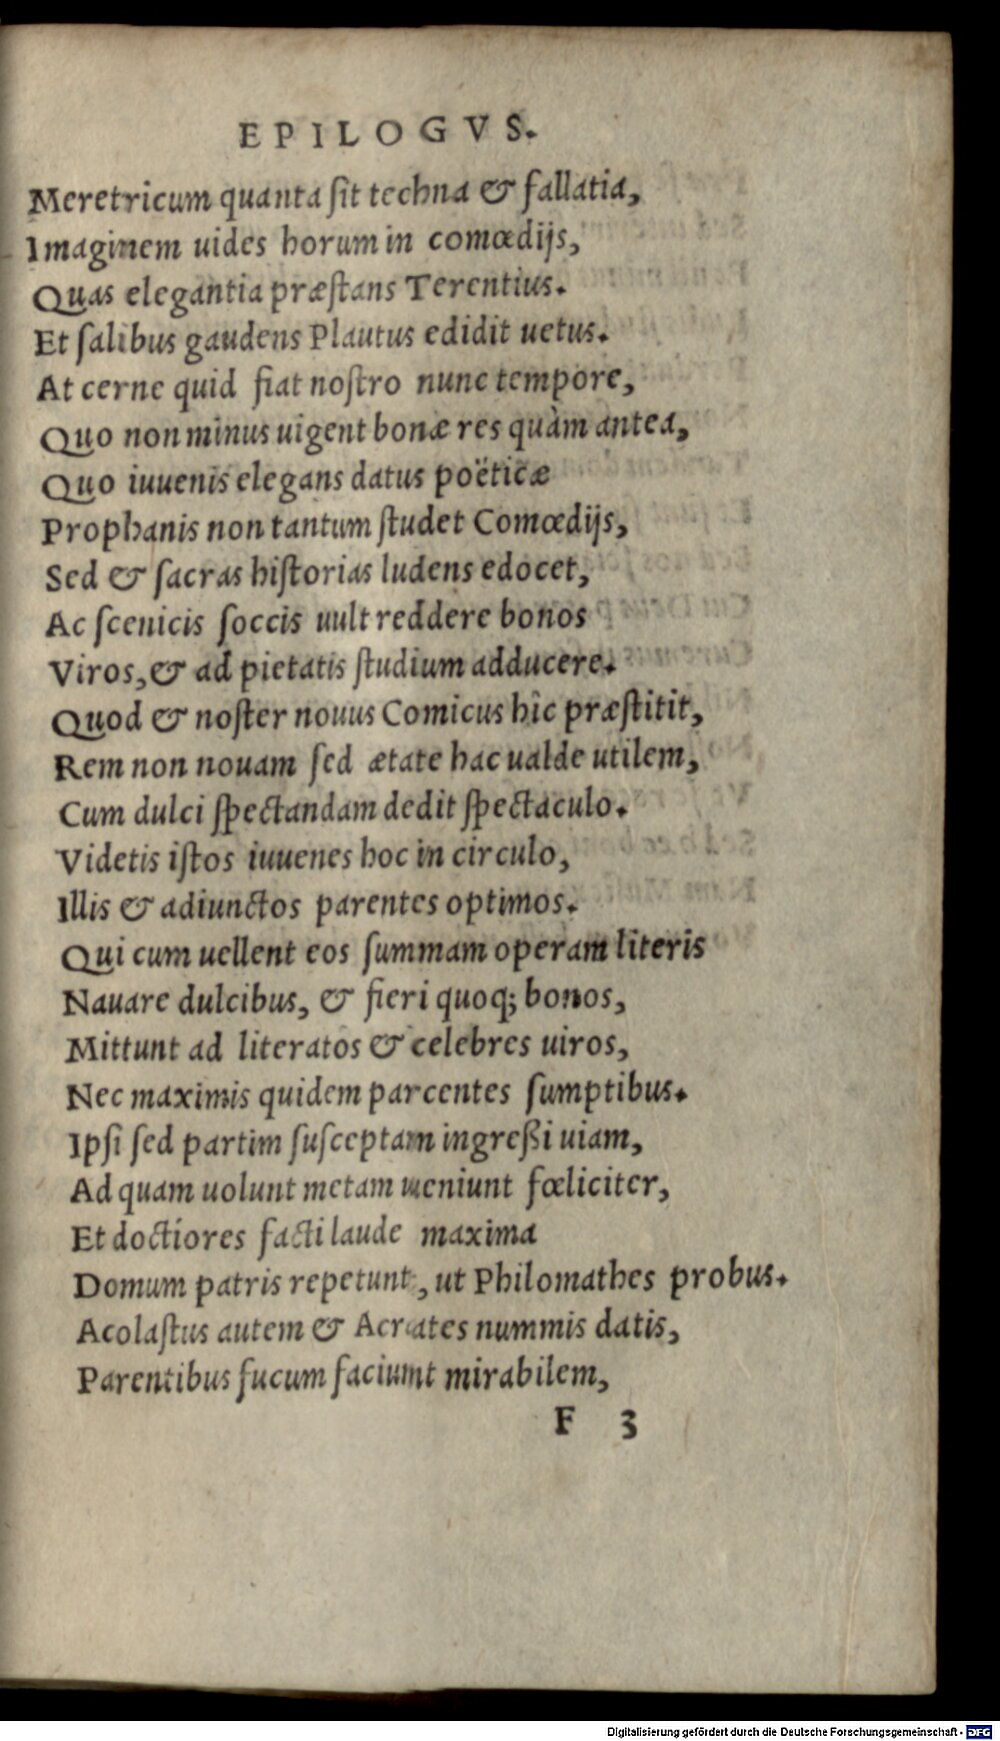 EPILOGVS.
Meretricum quanta ſit techna & fallatia,
Imaginem uides horum in comœdijs,
Quas elegantia præſtans Terentius.
Et ſalibus gaudens Plautus edidit uetus.
At cerne quid fiat noſtro nunc tempore,
Quo non minus uigent bonæ res quàm antea,
Quo iuuenis elegans datus poëticæ
Prophanis non tantum ſtudet Comœdijs,
Sed & ſacras hiſtorias ludens edocet,
Ac ſcenicis ſoccis uult reddere bonos
Viros, & ad pietatis ſtudium adducere.
Quod & noſter nouus Comicus hîc præſtitit,
Rem non nouam ſed ætate hac ualde utilem,
Cum dulci ſpectandam dedit ſpectaculo.
Videtis iſtos iuuenes hoc in circulo,
Illis & adiunctos parentes optimos.
Qui cum uellent eos ſummam operam literis
Nauare dulcibus, & fieri quoq; bonos,
Mittunt ad literatos & celebres uiros,
Nec maximis quidem parcentes ſumptibus.
Ipſi ſed partim ſuſceptam ingreßi uiam,
Ad quam uolunt metam ueniunt fœliciter,
Et doctiores facti laude maxima
Domum patris repetunt, ut Philomathes probus.
Acolaſtus autem & Acrates nummis datis,
Parentibus fucum faciunt mirabilem,
F 3
Digitalisierung gefördert durch die Deutsche Forschungsgemeinschaft - DFG